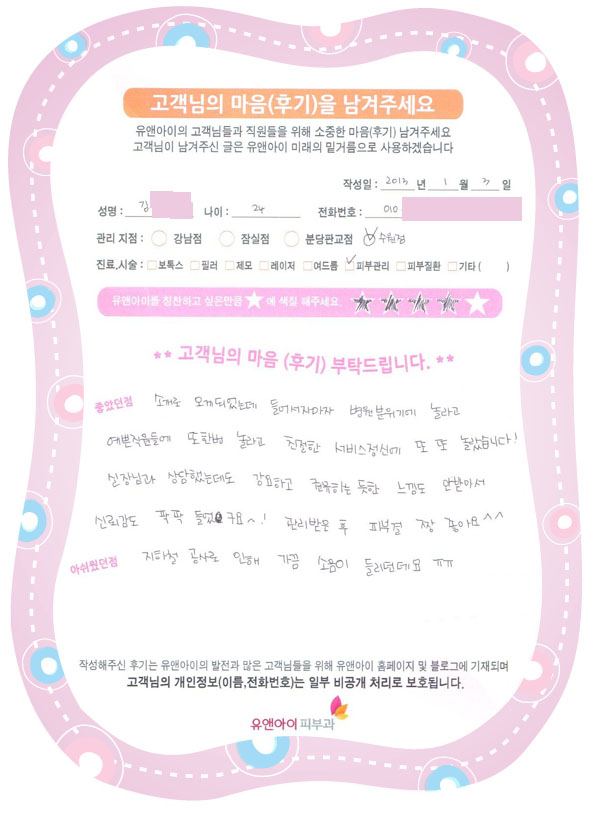 고객님의 마음(후기)을 남겨주세요
유앤아이의 고객님들과 직원들을 위해 소중한 마음(후기) 남겨주세요
고객님이 남겨주신 글은 유앤아이 미래의 밑거름으로 사용하겠습니다
작성일 : 2013 년 1 월 3 일
성명 : 김 나이 : 24 전화번호 : 010
관리 지점 : 강남점 잠실점 분당판교점 수원점
진료,시술 : 보톡스 필러 제모 레이저 여드름 피부관리 피부질환 기타 ( )
유앤아이를 칭찬하고 싶은만큼 ★ 에 색칠 해주세요. ★★★★★
** 고객님의 마음 (후기) 부탁드립니다. **
좋았던점 소개로 오게되었는데 들어서자마자 병원분위기에 놀라고
예쁜직원들에 또한번 놀라고 친절한 서비스정신에 또 또 놀랐습니다!
실장님과 상담했는데도 강요하고 권유하는 듯한 느낌도 안받아서
신뢰감도 팍팍 들었구요^! 관리받은 후 피부결 짱 좋아요^^
아쉬웠던점 지하철 공사로 인해 가끔 소음이 들리던데요 ㅠㅠ
작성해주신 후기는 유앤아이의 발전과 많은 고객님들을 위해 유앤아이 홈페이지 및 블로그에 기재되며
고객님의 개인정보(이름,전화번호)는 일부 비공개 처리로 보호됩니다.
유앤아이피부과